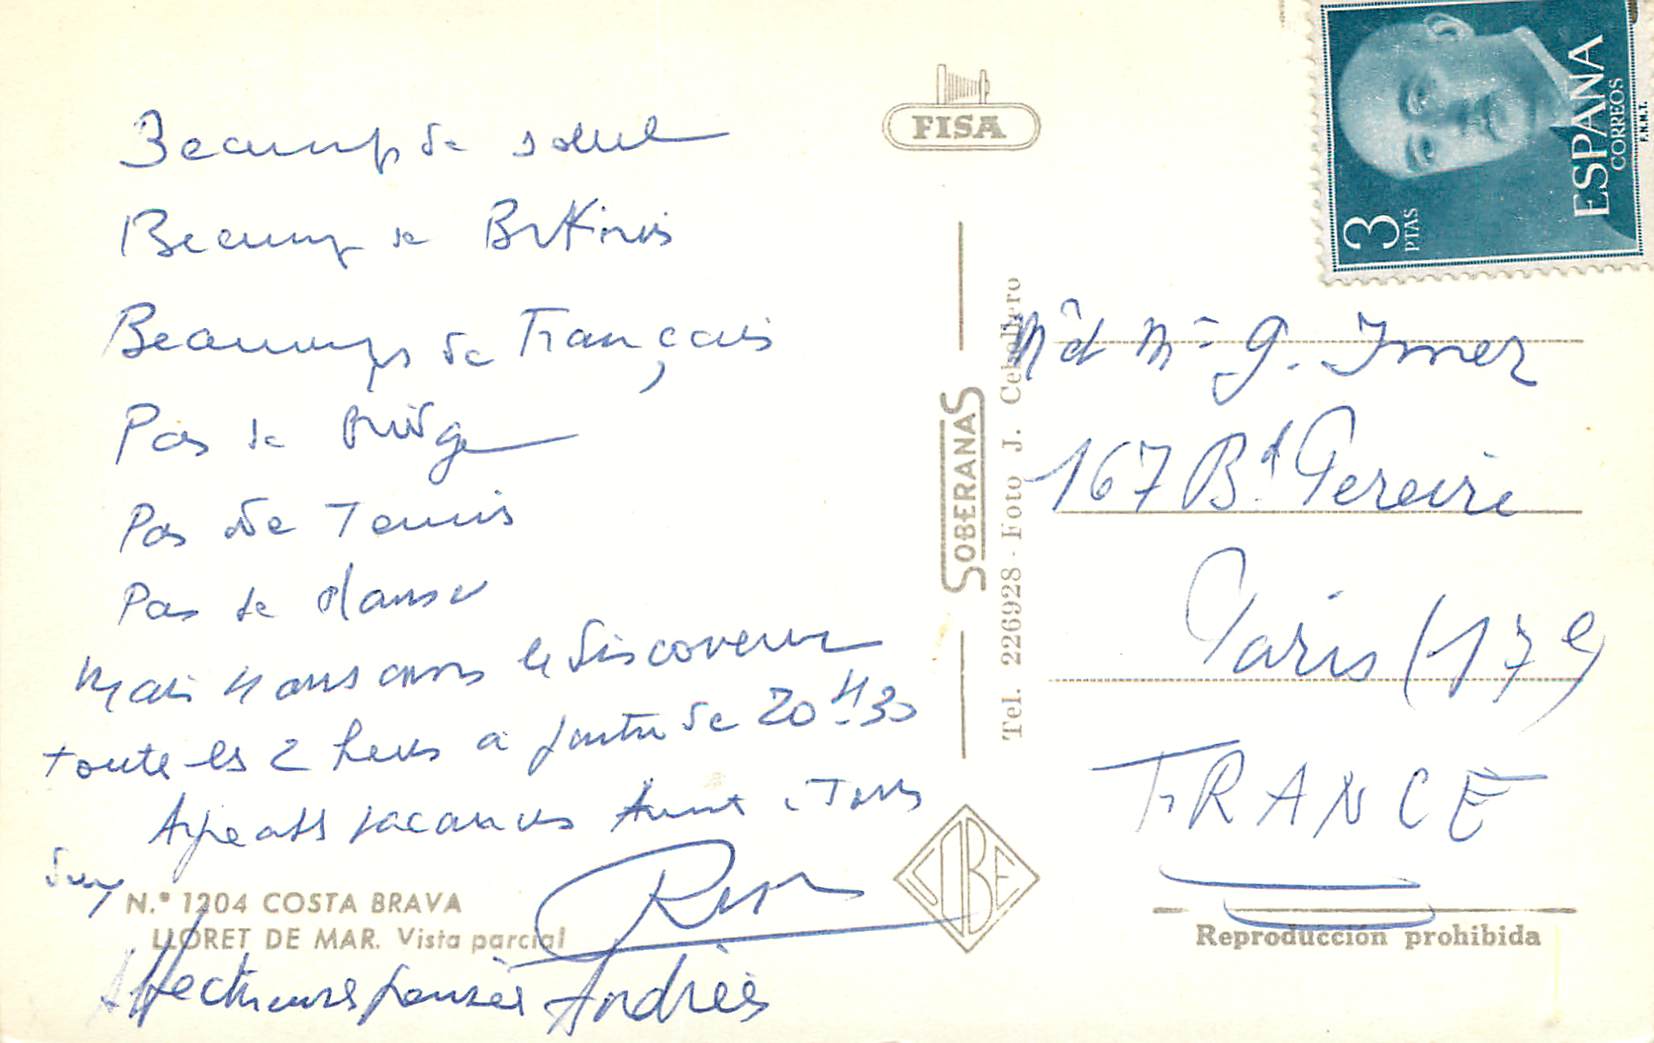 Beaucoup de soleil
Beaucoup de Bikinis
Beaucoup de Français
Pas de Bridge
Pas de Tennis
Pas de danse
Mais nous avons
toute les 2 heures a partir de 20H30
vacances
Affectueuses pensées Andrée
N.º 1204 COSTA BRAVA
LLORET DE MAR. Vista parcial
FISA
SOBERANAS
Tel. 226928 - Foto J. Cebollero
CYBE
3 PTAS
ESPAÑA
CORREOS
F.N.M.T.
Mr et Me G. Imer
167 Bd Pereire
Paris (17e)
FRANCE
Reproducción prohibida